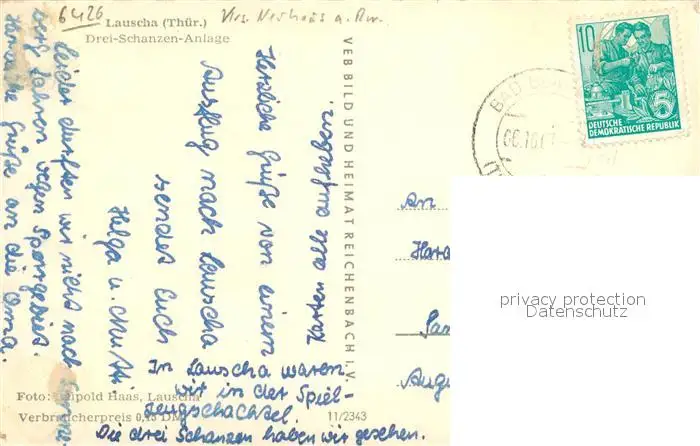 6426
Lauscha (Thür.)
Krs. Neuhaus a. Rw.
Drei-Schanzen-Anlage
Karten alle aufheben.
Herzliche Grüße von einem
Ausflug nach Lauscha
sendet Euch
Helga u. Mutti.
In Lauscha waren
wir in der Spiel-
zeugschachtel.
Die drei Schanzen haben wir gesehen.
leider durften wir nicht nach
fahren wegen Sperrgebiet.
Herzliche Grüße an die Oma.
Foto: Leipold Haas, Lauscha
Verbraucherpreis 0,15 DM
11/2343
VEB BILD UND HEIMAT REICHENBACH I. V.
BAD
10
5
DEUTSCHE
DEMOKRATISCHE REPUBLIK
An
privacy protection
Datenschutz